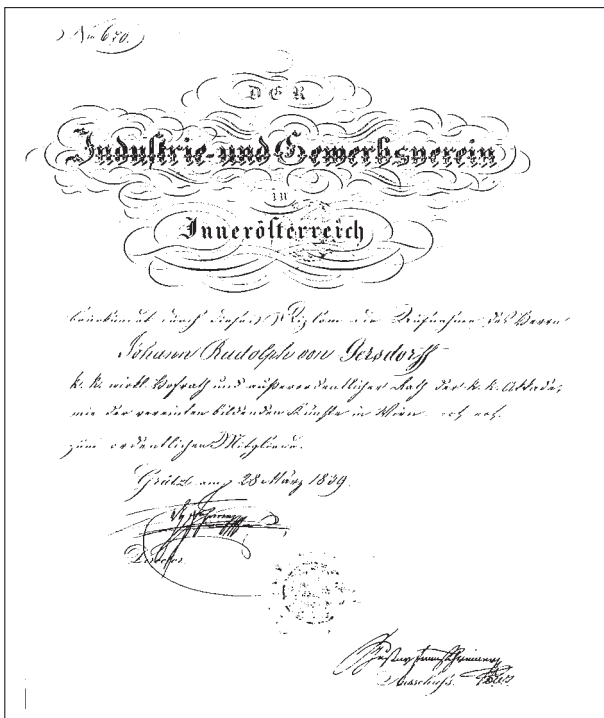 No 670.
DER
Industrie-und Gewerbsverein
in
Inneröſterreich
beurkundet durch dieses Diplom die Aufnahme des Herrn
Johann Rudolph von Gersdorff
k. k. wirkl. Hofrath und außerordentlicher Rath der k. k. Akade,
mie der vereinten bildenden Künste in Wien
zum ordentlichen Mitgliede.
Grätz am 28 März 1839.
Director
Ausschuß.